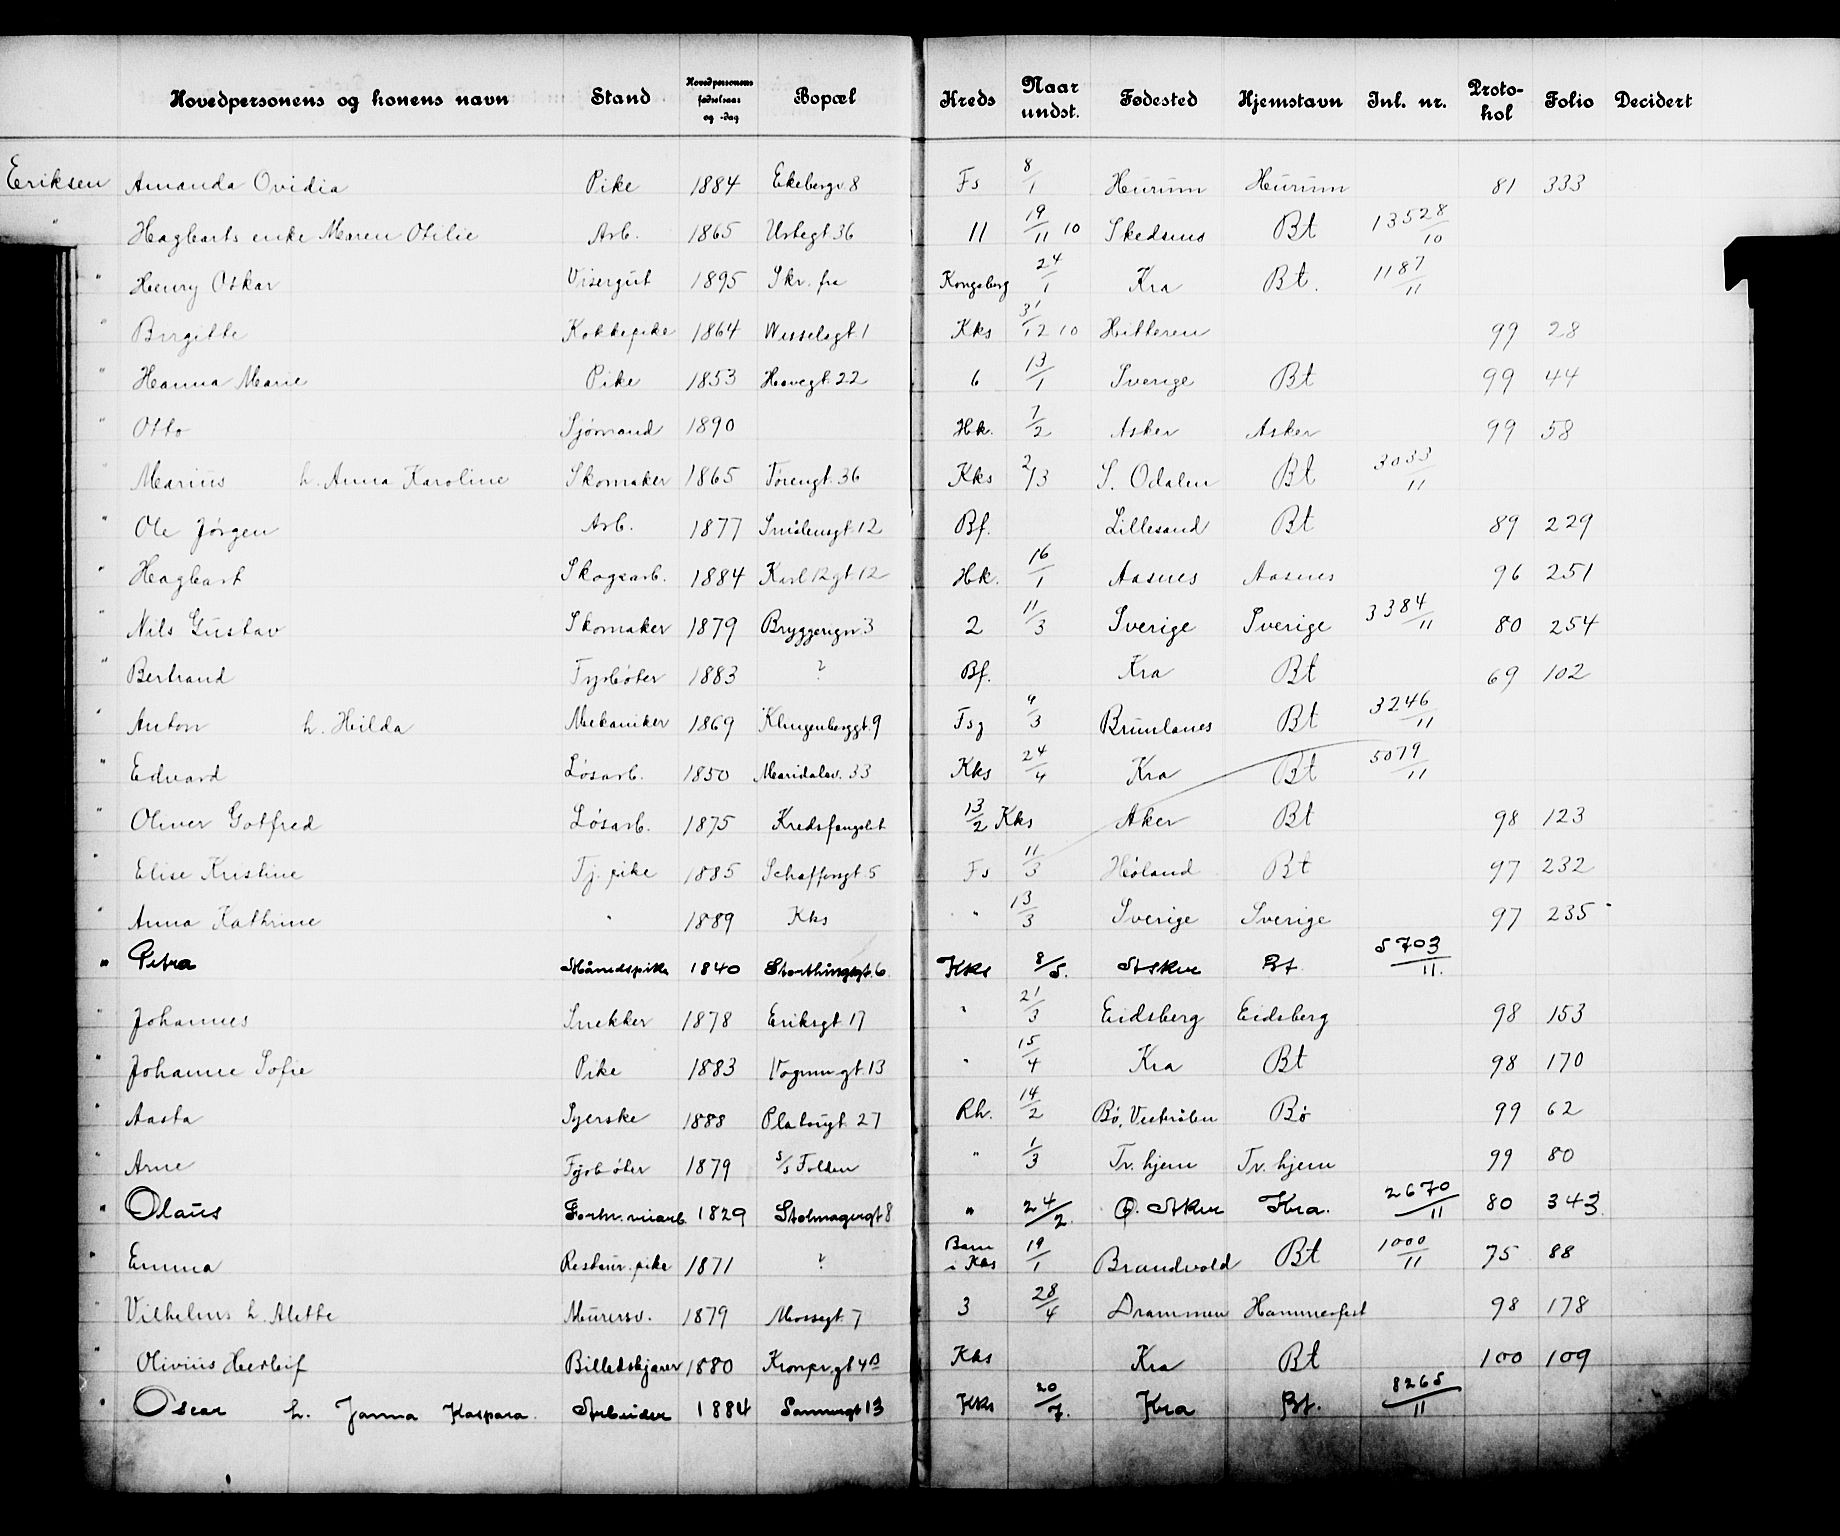 Hovedpersonens og konens navn Stand Hovedpersonens fødselsaar og -dag Bopæl Kreds Naar undst. Fødested Hjemstavn Inl. nr. Proto-kol Folio Decidert
Eriksen Amanda Ovidia Pike 1884 Ekebergv. 8 Fs 8/1 Hurum Hurum 81 333
" Hagbarts enke Maren Otilie Arb. 1865 Urtegt 36 11 19/11 10 Skedsmo Bt 13528/10
" Henry Oskar Visergut 1895 Skr. fra Kongsberg 24/1 Kra Bt. 1187/11
" Birgitte Kokkepike 1864 Wesselsgt 1 Kks 31/12 10 Hitteren 99 28
" Hanna Marie Pike 1853 Havegt. 22 6 13/1 Sverige Bt 99 44
" Otto Sjømand 1890 Hk. 7/2 Asker Asker 99 58
" Marius h. Anna Karoline Skomaker 1865 Torengt. 36 Kks 2/3 S. Odalen Bt 3033/11
" Ole Jørgen Arb. 1877 Smålensgt. 12 Bf. Lillesand Bt 89 229
" Hagbart Skogsarb. 1884 Karl 12 gt. 12 Hk. 16/1 Aasnes Aasnes 96 251
" Nils Gustav Skomaker 1879 Bryggerigt 3 2 11/3 Sverige Sverige 3384/11 80 254
" Bertrand Fyrbøter 1883 ? Bf. Kra Bt 69 102
" Anton h. Hilda Mekaniker 1869 Klingenberggt. 9 Fsg /3 Brunlanes Bt 3246/11
" Edvard Løsarb. 1850 Maridalsv. 33 Kks 24/4 Kra Bt 5079/11
" Oliver Gotfred Løsarb. 1875 Kredsfængslet 13/2 Kks Aker Bt 98 123
" Elise Kristine Tj. pike 1885 Schaffersgt 5 Fs 11/3 Høland Bt 97 232
" Anna Kathrine " 1889 Kks " 13/3 Sverige Sverige 97 235
" Petra Månedspike 1840 Storthingsgt. 6 Kks 8/5. Asker Bt. 5703/11.
" Johannes Snekker 1878 Eriksgt 17 " 21/3 Eidsberg Eidsberg 98 153
" Johanne Sofie Pike 1883 Vognmgt. 13 " 15/4 Kra Bt 98 170
" Aasta Syerske 1888 Platougt. 27 Rh. 14/2 Bø, Vesterålen Bø 99 62
" Arne Fyrbøter 1879 s/s Folden " 1/3 Tr. hjem Tr. hjem 99 80
" Olaus Forhv. veiarb. 1829 Stolmagergt 8 " 24/2. Ø. Aker Kra. 2670/11 80 343.
" Emma Restaur. pike 1871 ? Barn i Kks 19/1 Brandvold Bt 1000/11 75 88
" Vilhelms h. Alette Murersv. 1879 Mossegt. 7 3 28/4 Drammen Hammerfest 98 178
" Olivius Herleif Billedskjærer 1880 Kronpr. gt 4B Kks Kra Bt 100 109
" Oscar h. Janna Kaspara. Arbeider 1884 Sannergt 13 Kks 20/7. Kra Bt. 8265/11